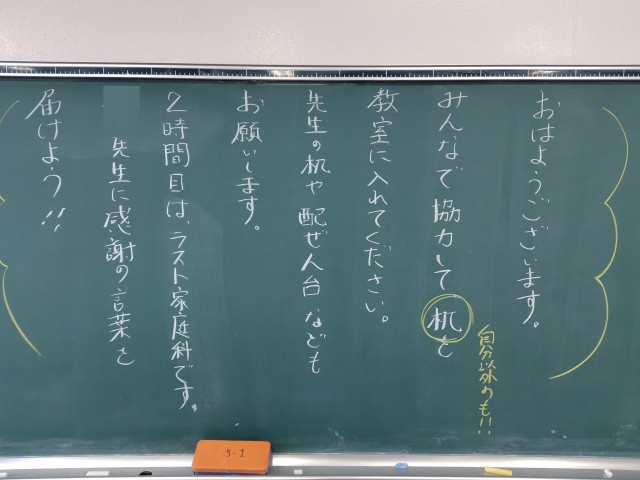 おはようございます。
みんなで協力して机を
自分以外のも!!
教室に入れてください。
先生の机や配ぜん台なども
お願いします。
2時間目は、ラスト家庭科です。
先生に感謝の言葉を
届けよう!!
5-1